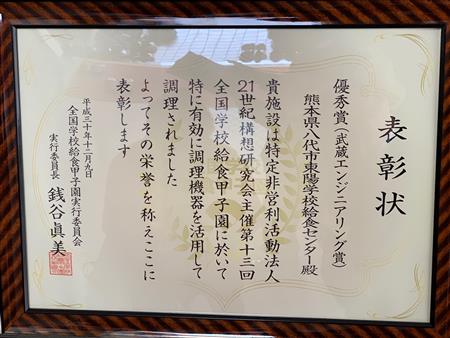 表彰状
優秀賞(武蔵エンジニアリング賞)
熊本県八代市東陽学校給食センター殿
貴施設は特定非営利活動法人
21世紀構想研究会主催第十三回
全国学校給食甲子園に於いて
特に有効に調理機器を活用して
調理されました
よってその栄誉を称えここに
表彰します
平成三十年十二月九日
全国学校給食甲子園実行委員会
実行委員長 銭谷眞美